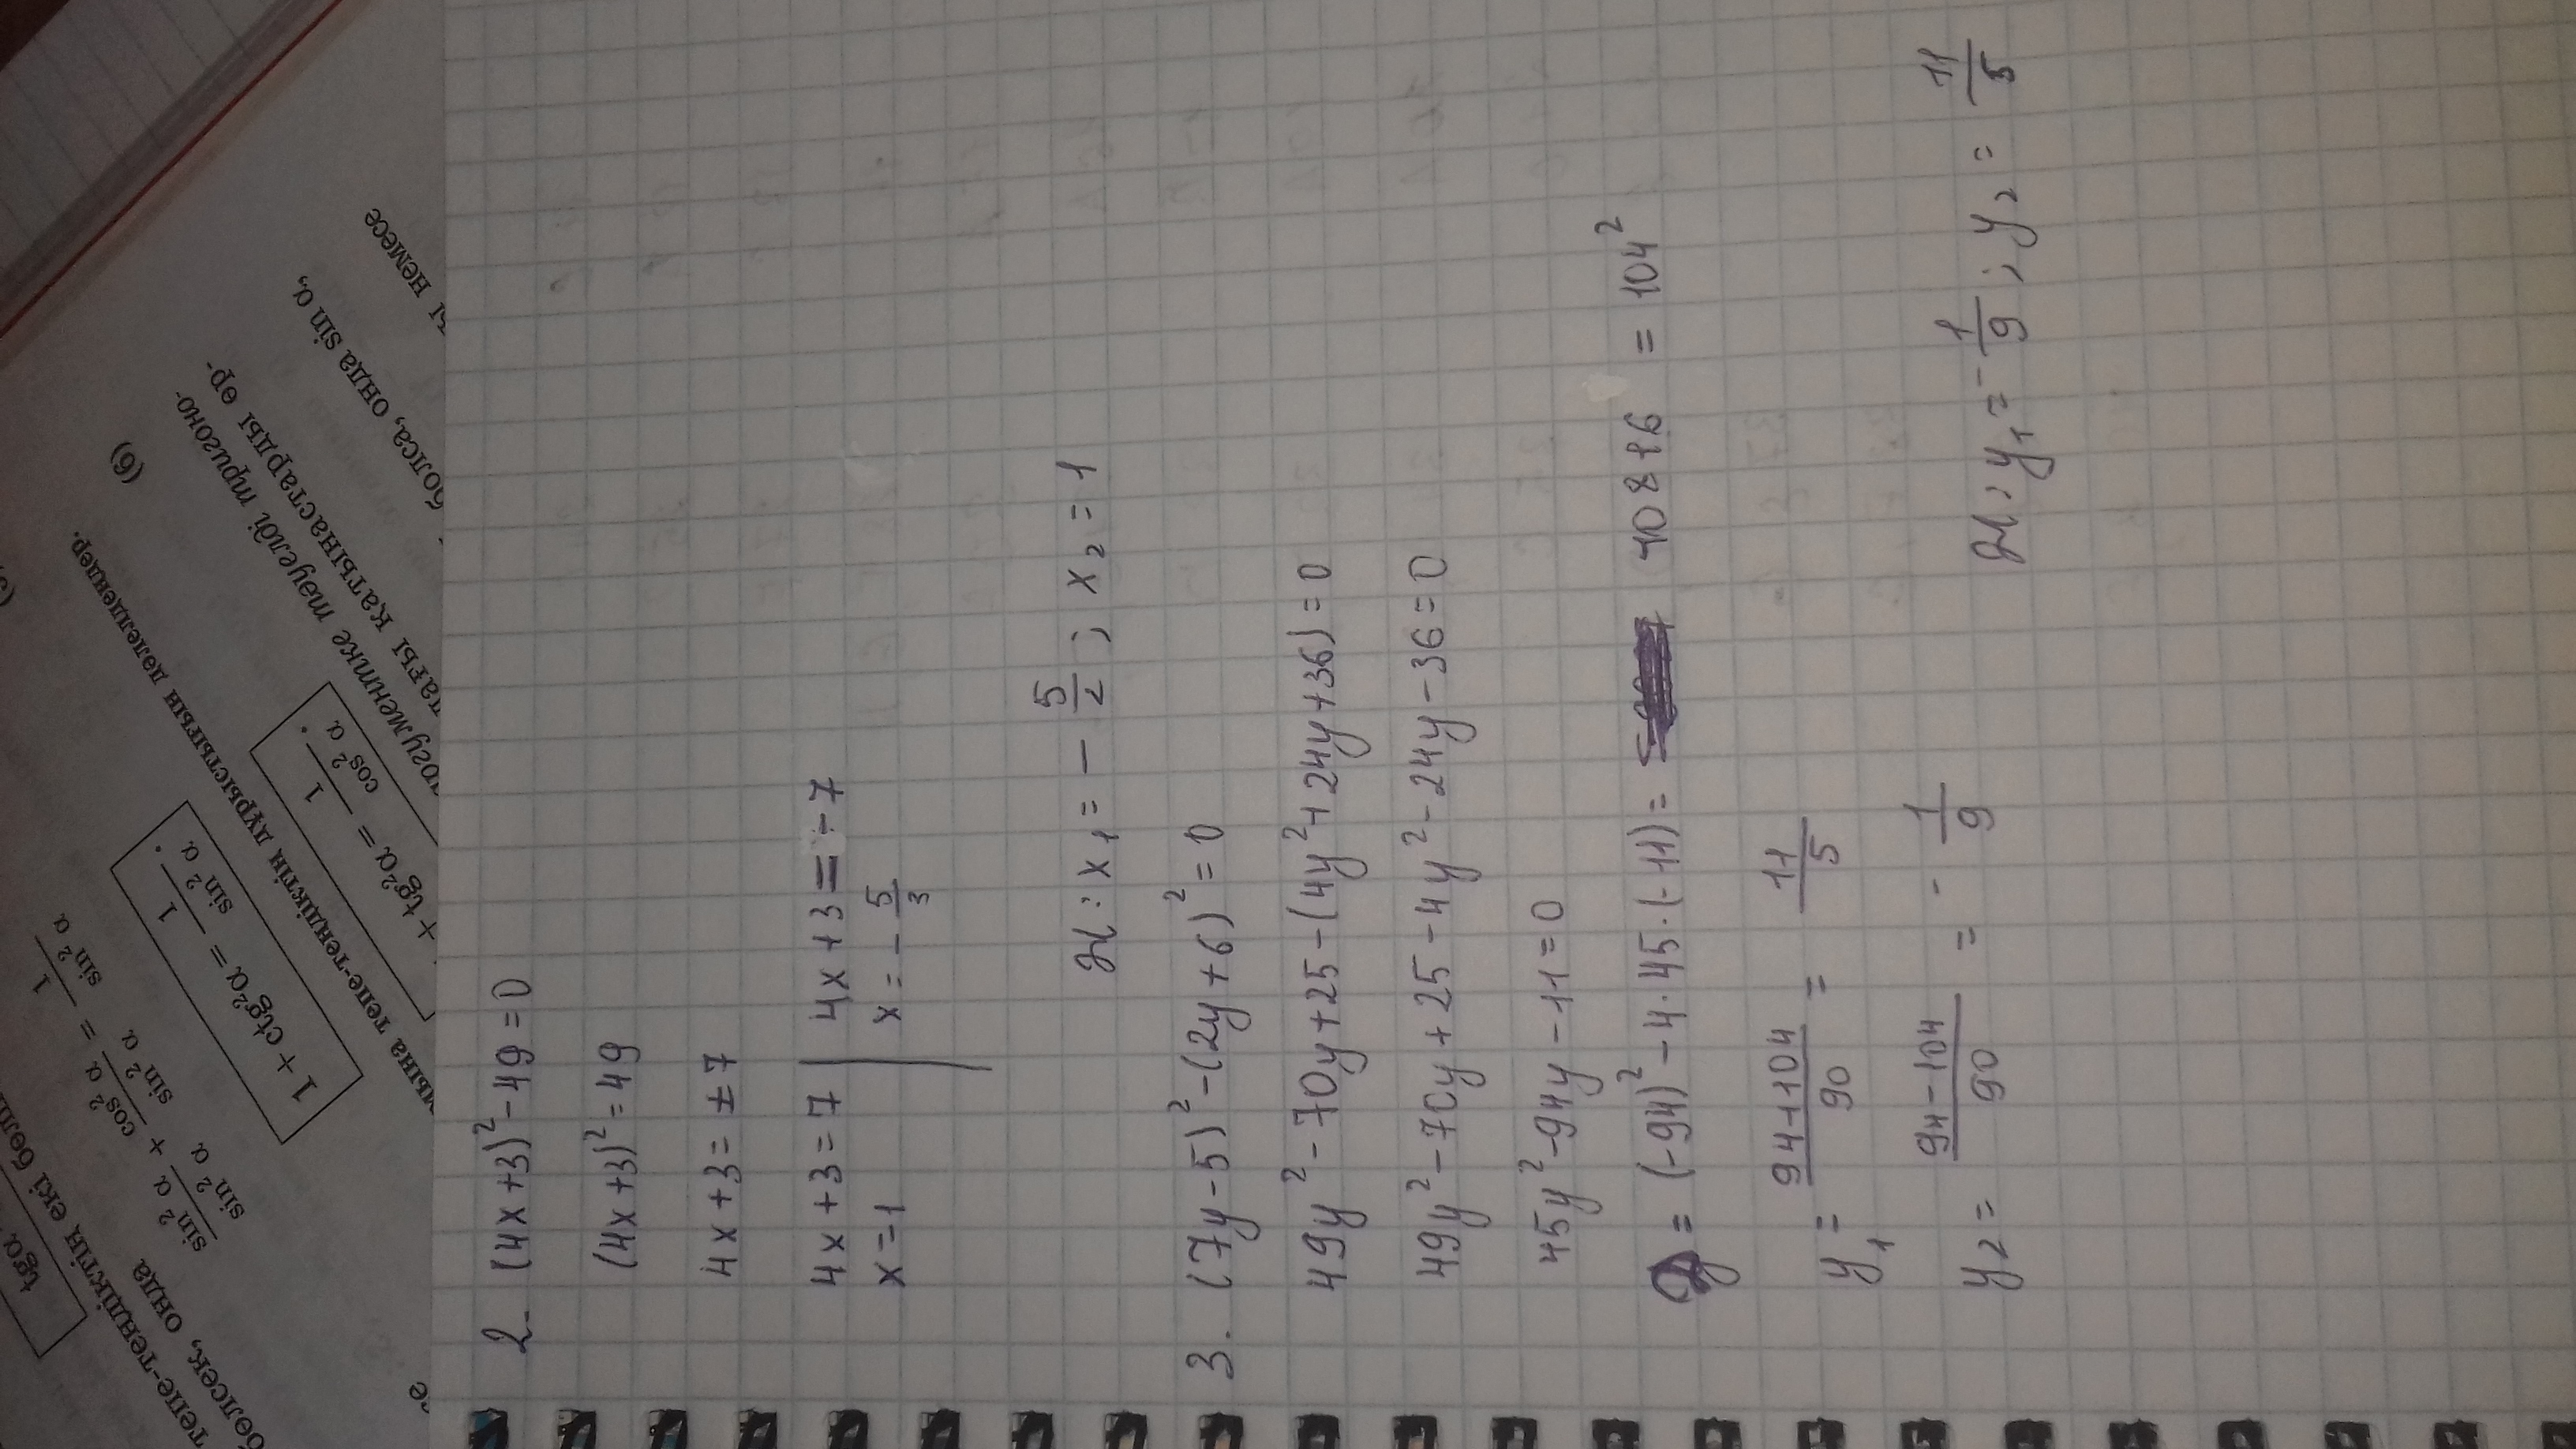 2. (4x+3)² - 49 = 0
(4x+3)² = 49
4x+3 = ±7
4x+3 = 7 | 4x+3 = -7
x = 1 | x = - 5/3
Ж: x₁ = - 5/2; x₂ = 1
3. (7y-5)² - (2y+6)² = 0
49y² - 70y + 25 - (4y² + 24y + 36) = 0
49y² - 70y + 25 - 4y² - 24y - 36 = 0
45y² - 94y - 11 = 0
= (-94)² - 4·45·(-11) = 10816 = 104²
y₁ = 94+104/90 = 11/5
y₂ = 94-104/90 = - 1/9
Ж: y₁ = - 1/9; y₂ = 11/5
tgα
тепе-теңдіктің екі бөлі
бөлсек, онда
sin²α/sin²α + cos²α/sin²α = 1/sin²α
1 + ctg²α = 1/sin²α.
мына тепе-теңдіктің дұрыстығын дәлелдеңдер.
+ tg²α = 1/cos²α. (6)
ргументке тәуелді тригоно-
дағы қатынастарды өр-
болса, онда sin α,
ы немесе